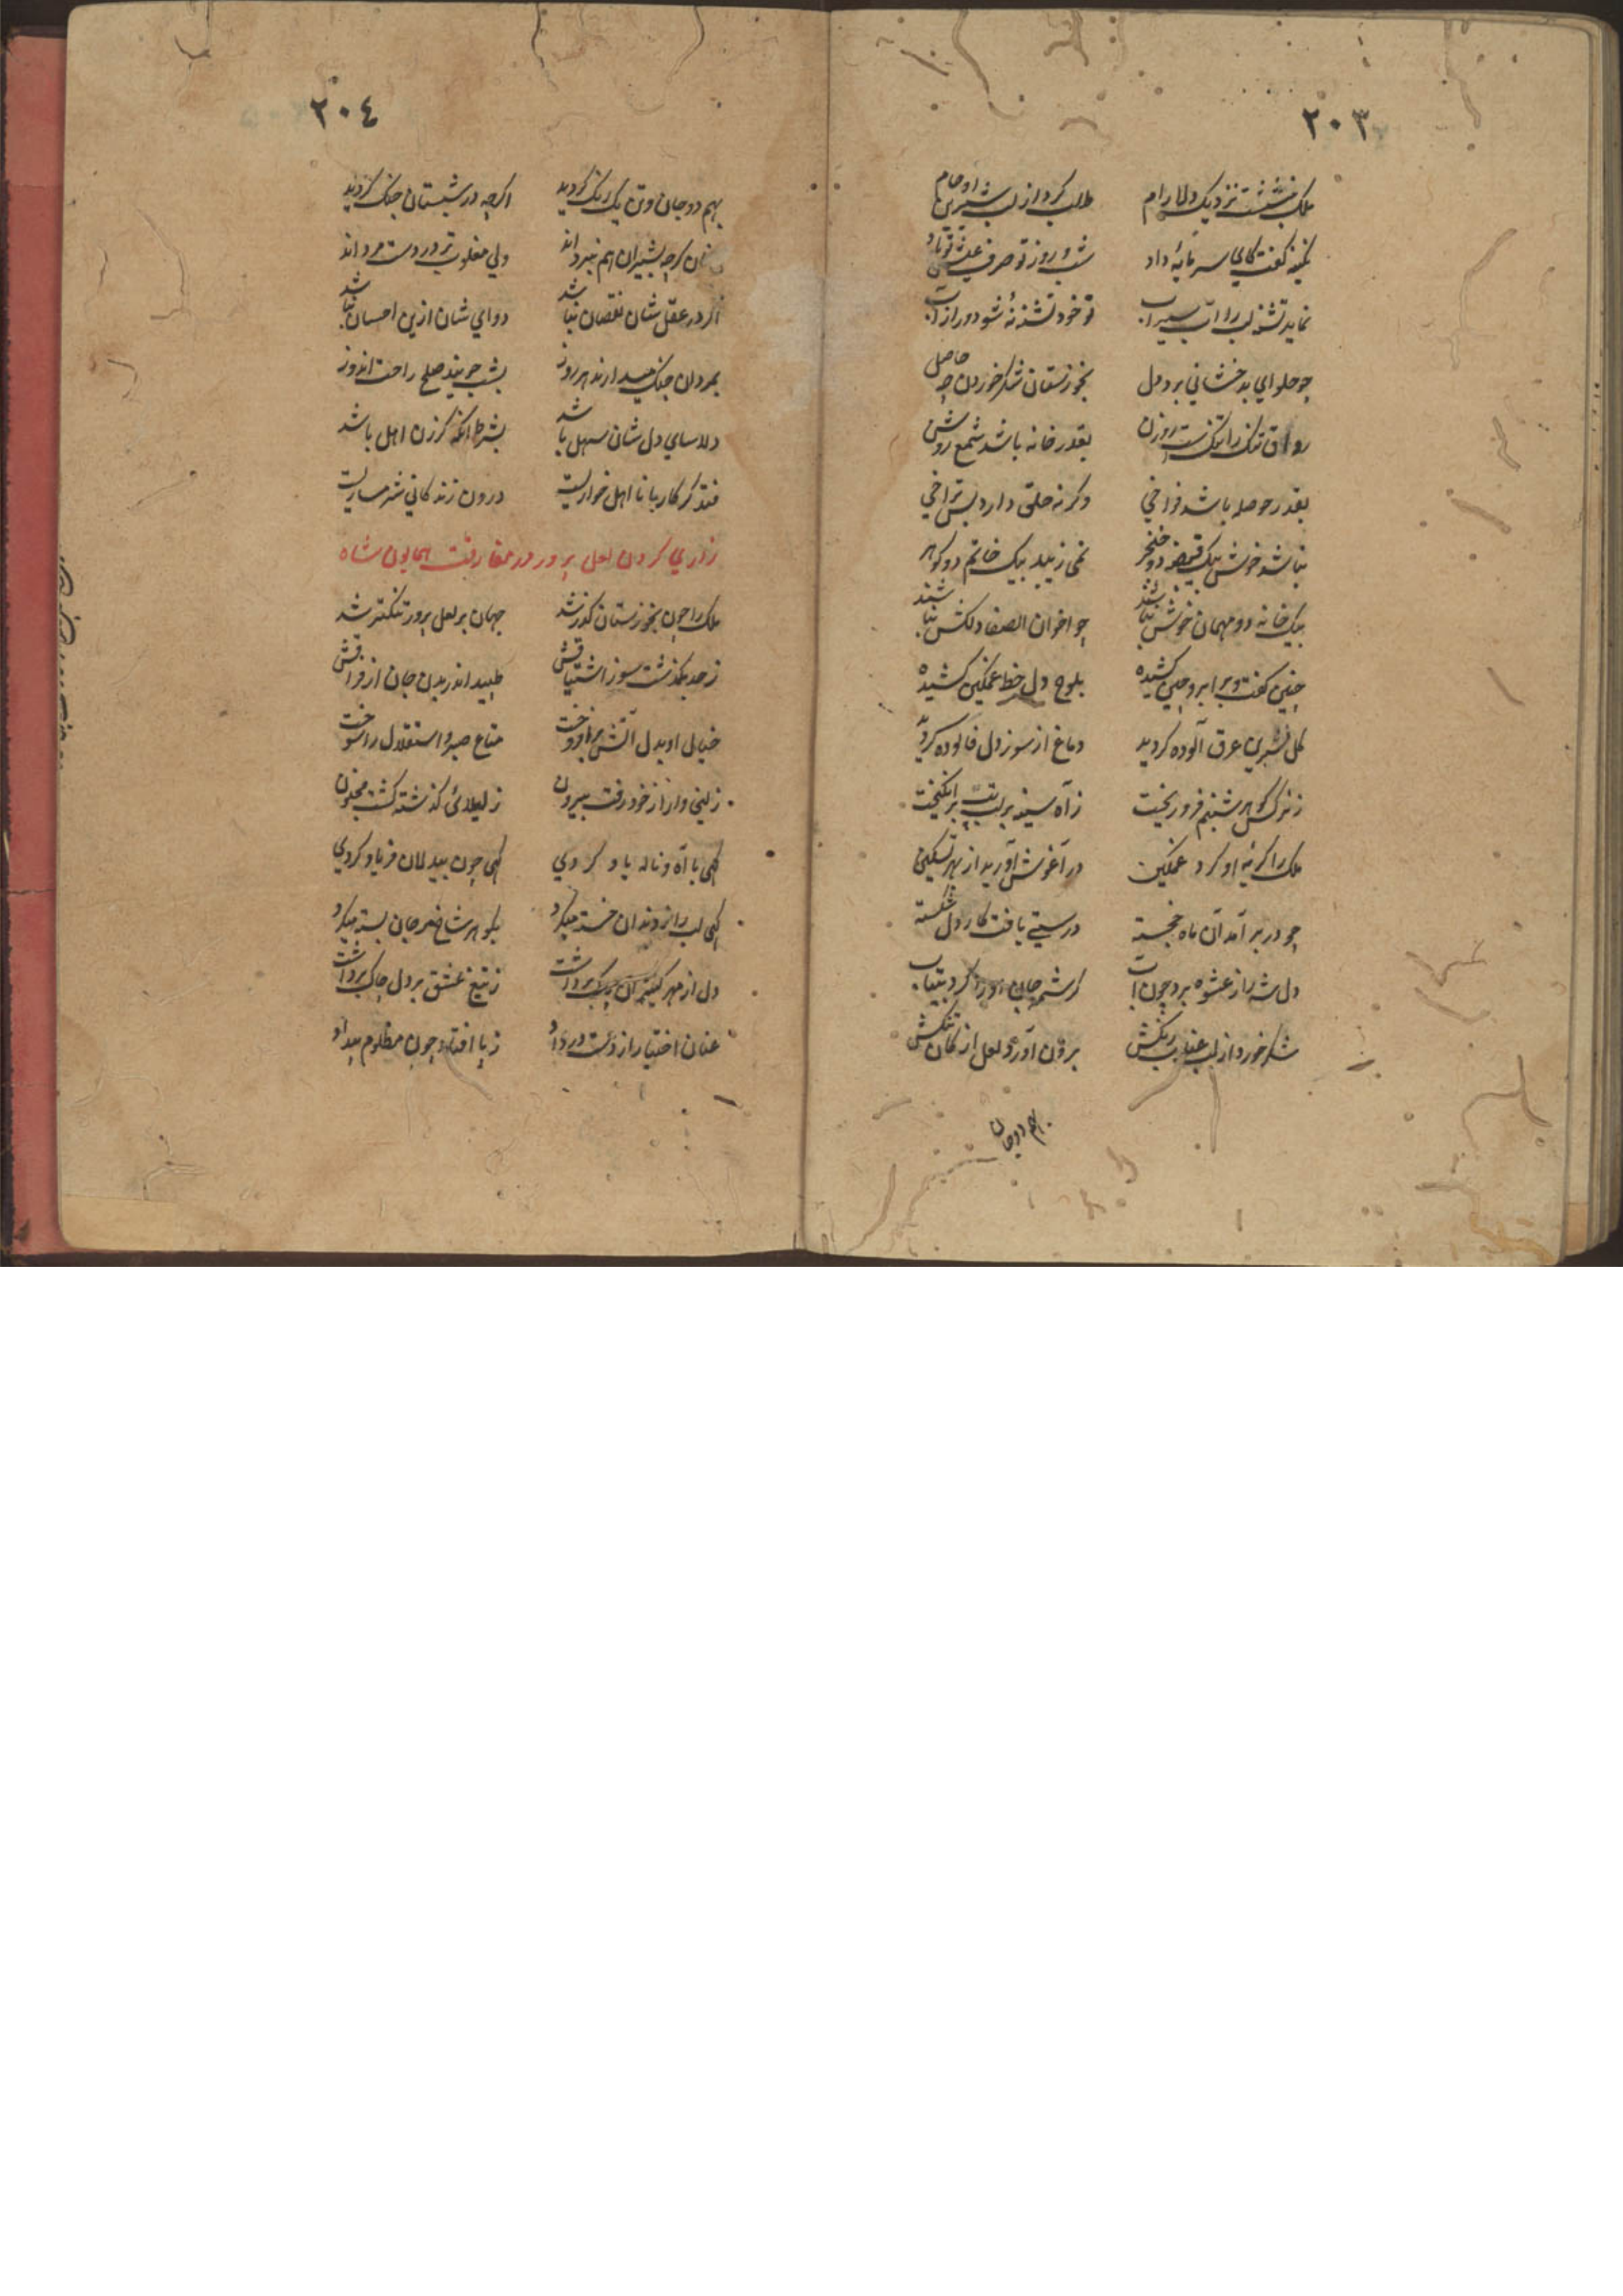 ٢٠٣
ملک بنشست نزدیک دلارام طلب کرد از لب شیرین او کام
گفت کای سرمایهٔ داد شب و روز تو صرف عیش تو باد
نماید تشنه لب را آب سیراب تو خود تشنه نهٔ شو دور از آب
چو حلوای بدخشانی برد دل بخوزستان شکر خوردن چه حاصل
رواق تنک را تنکست روزن بقدر خانه باشد شمع روشن
بقدر حوصله باشد فراخی وکرنه حلق دارد بس تراخی
نباشد خوش بیک قبضه دو خنجر نمی زیبد بیک خاتم دو کوهر
بیک خانه دو مهمان خوش نباشند چو اخوان الصفا دلکش نباشند
چنین کفت و برابرو چین کشیده بلوح دل خط غمکین کشیده
کل نسرین عرق آلوده کردید دماغ از سوز دل فالوده کردید
ز نرکس کوهر شبنم فرو ریخت ز آه سینه بر لب تب برانکیخت
ملک را کریهٔ او کرد غمکین در آغوش آورید از بهر تسکین
چو در بر آمد آن ماه خجسته درستی یافت کار دل شکسته
دل شه را ز عشوه برد چون آب کرشمه جان او را کرد بیتاب
شکر خورد از لب عناب رنکش برون آورد لعل از کان تنکش
بهم دو جان
٢٠٤
بهم دو جان و تن یک رنک کردید اکرچه در شبستان جنک کردید
زنان کرچه بشیران هم نبرد اند ولی مغلوب زور دست مرد اند
اکر در عقل شان نقصان نباشد دوای شان ازین احسان نباشد
بمردان جنک میدارند هر روز بشب جویند صلح راحت اندوز
دلاسای دل شان سهل باشد بشرط آنکه کر زن اهل باشد
فتد کر کار با نا اهل خواریست درون زندکانی شرمساریست
زاری کردن لعل پرور در مفارقت همایون شاه
ملک را چون بخوزستان کذر شد جهان بر لعل پرور تنکتر شد
ز حد بکذشت سوز اشتیاقش طپید اندر بدن جان از فراقش
خیال او بدل آتش برافروخت متاع صبر و استقلال را سوخت
زلیخی وار از خود رفت بیرون ز لیلائی کذشته کشت مجنون
کهی با آه و ناله یاد کردی کهی چون بیدلان فریاد کردی
کهی لب را ز دندان خسته میکرد بکوهر شاخ مرجان بسته میکرد
دل از مهر کنیزان پاک برداشت ز تیغ عشق بر دل چاک برداشت
عنان اختیار از دست در داد ز پا افتاد چون مظلوم بیداد